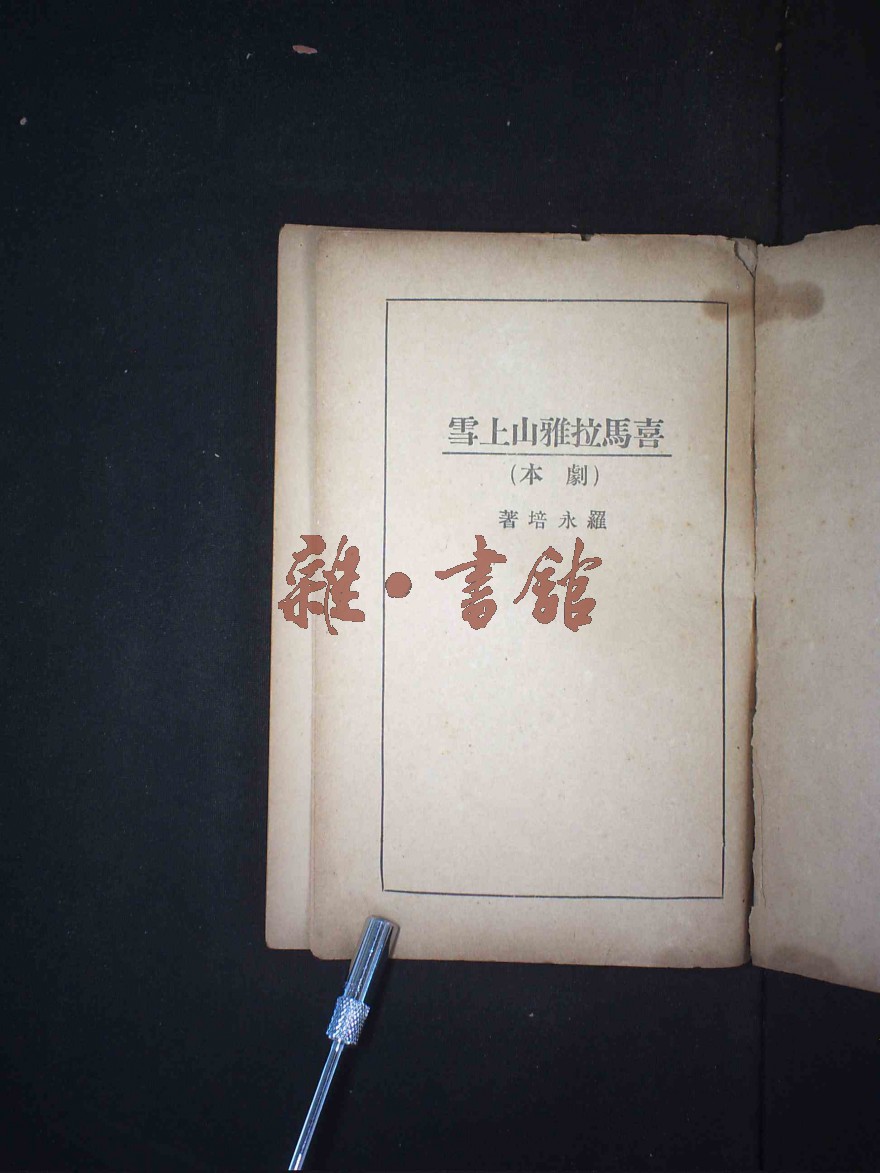 喜馬拉雅山上雪
(劇本)
羅永培著
雜·書館